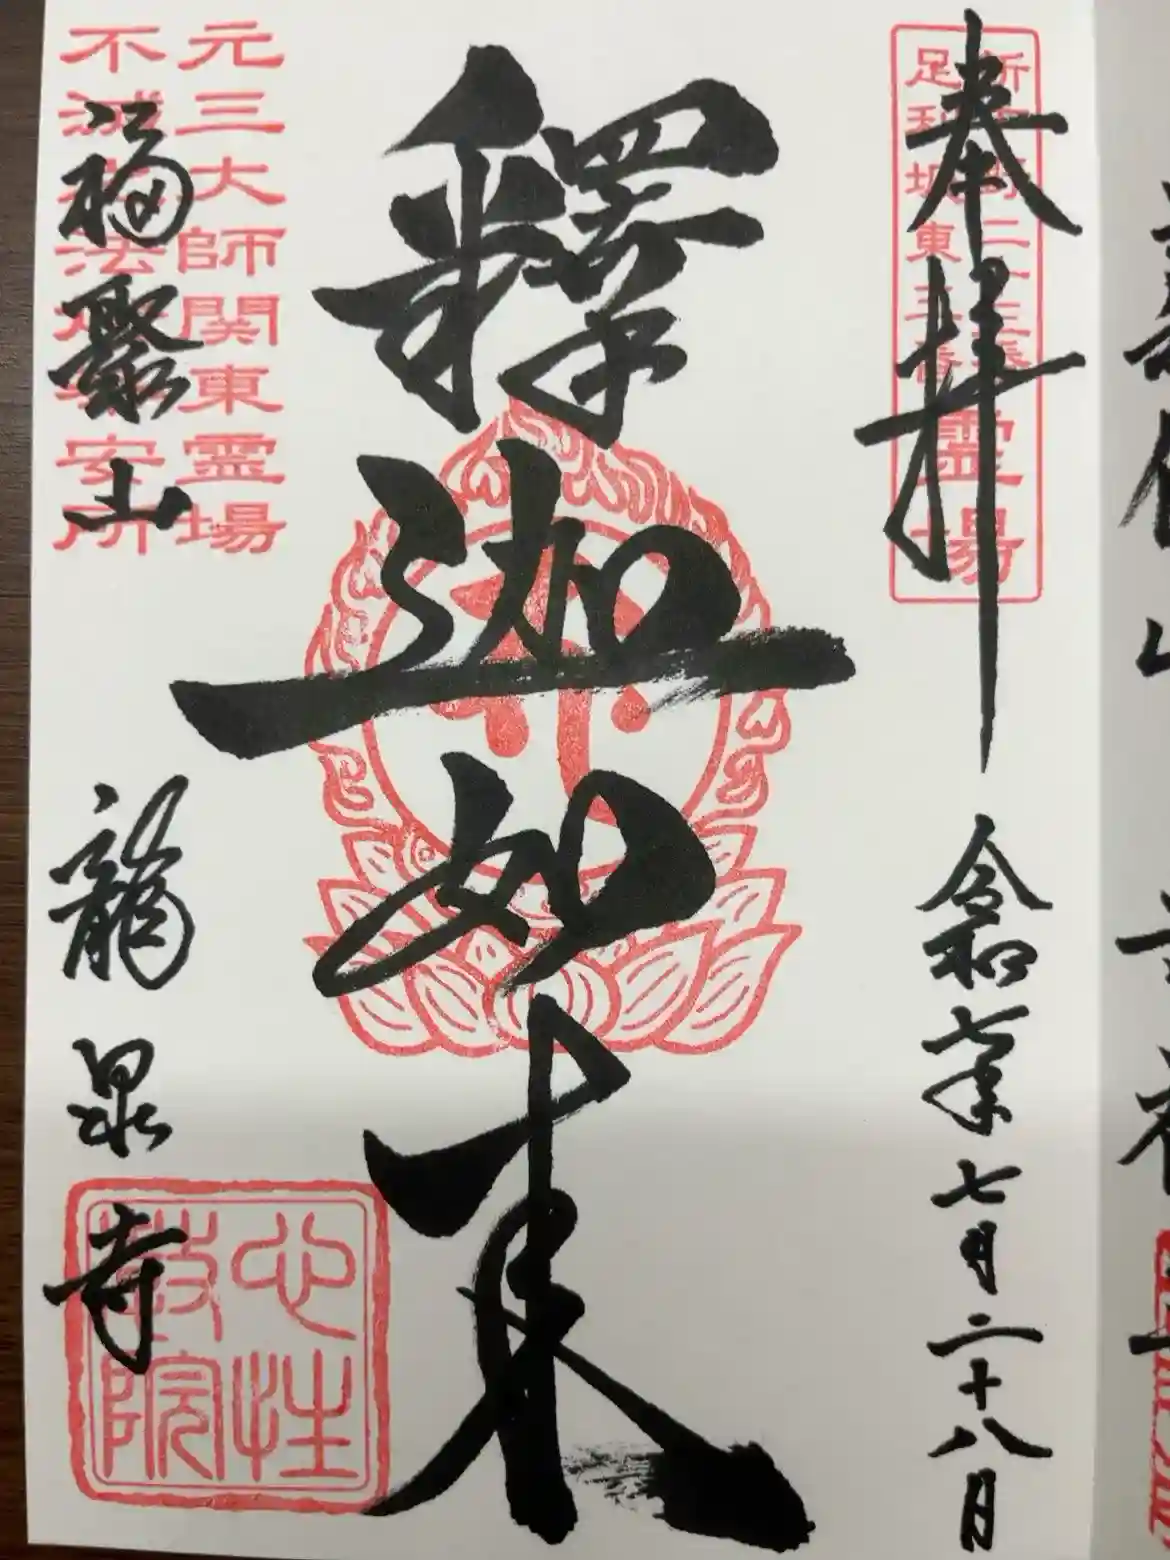 奉拝
令和七年七月二十八日
足利坂東三番
霊場
釋迦如来
元三大師関東霊場
不滅之法燈奉安所
福聚山
龍泉寺
心性
教院